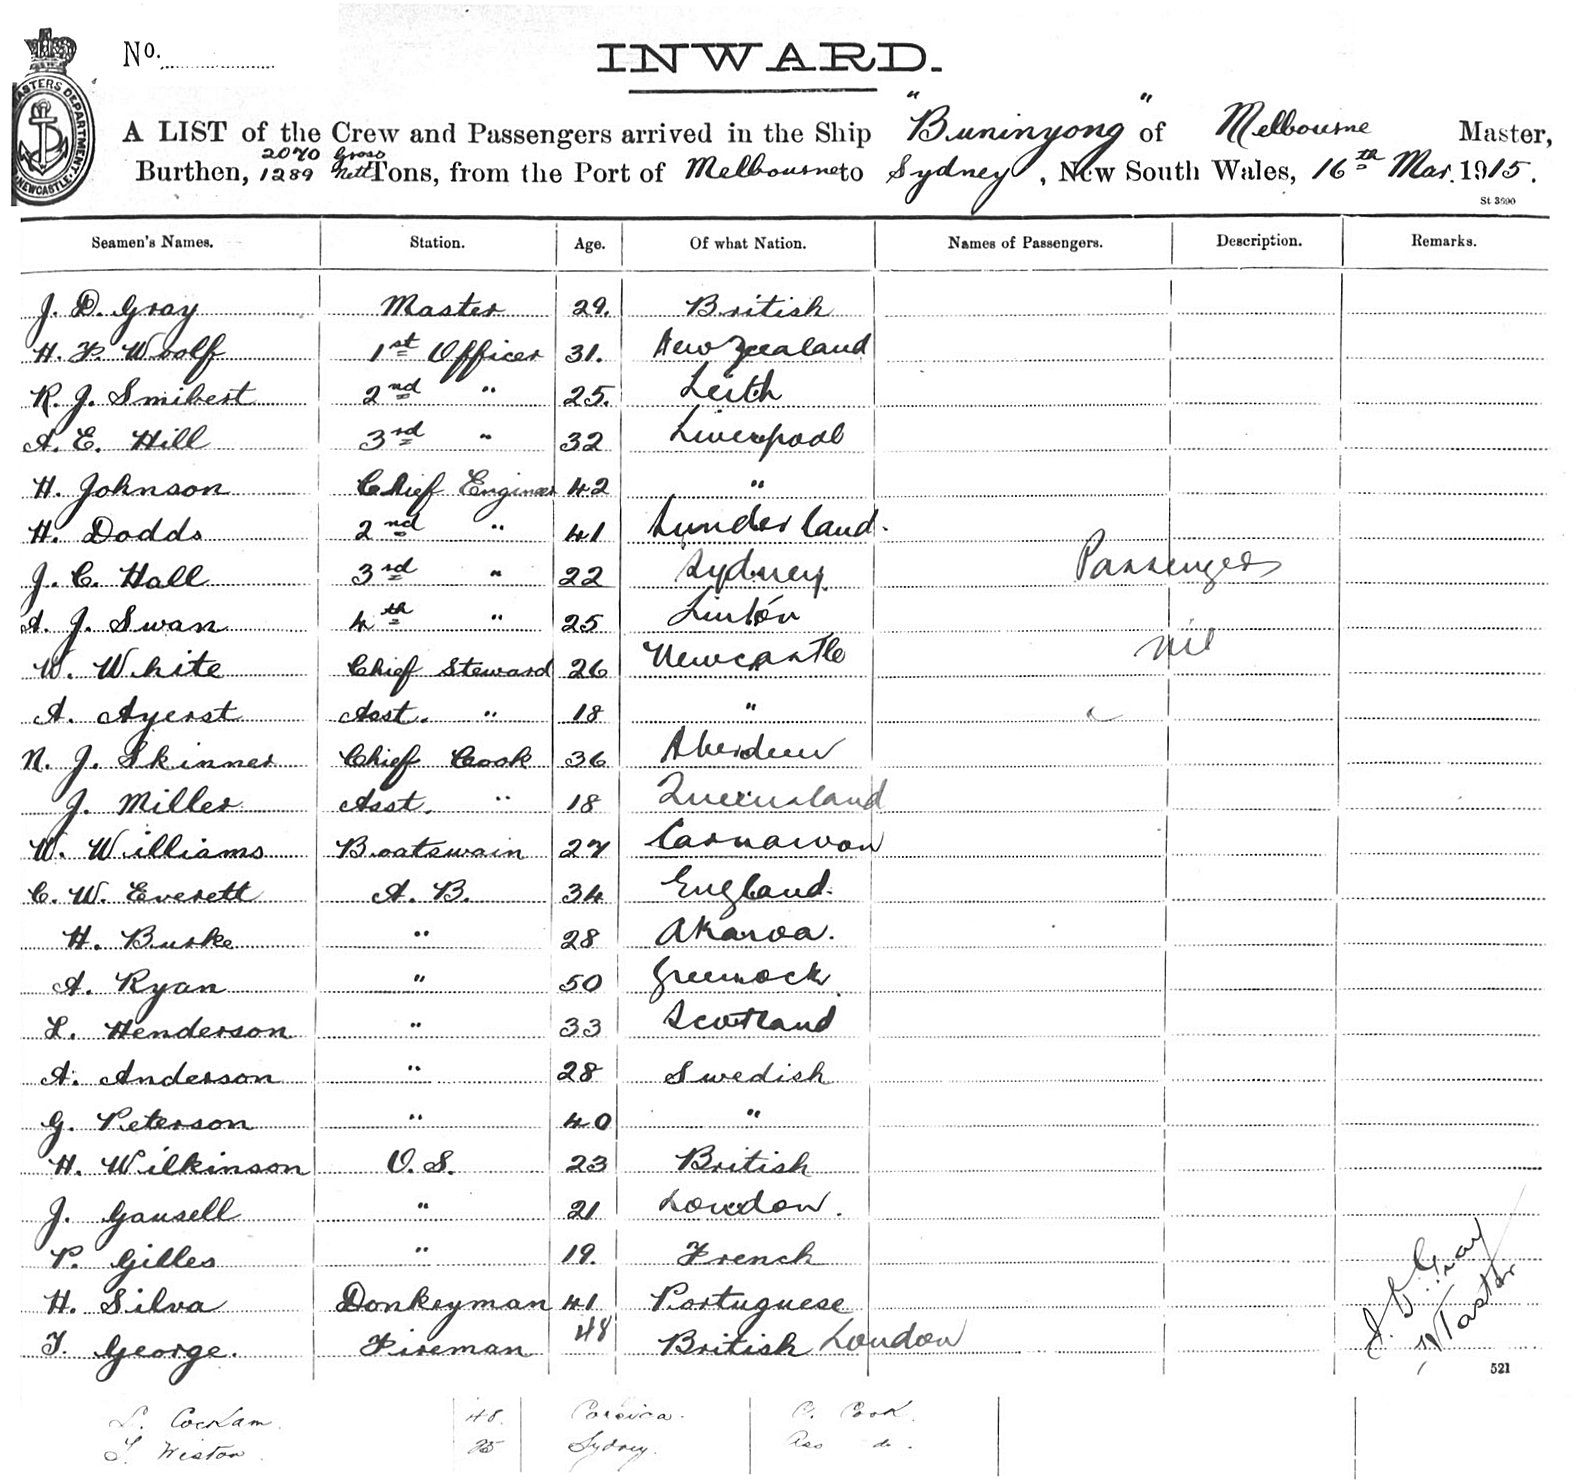 No.
INWARD.
A LIST of the Crew and Passengers arrived in the Ship "Buninyong" of Melbourne Master,
Burthen, 2070 Gross 1289 Nett Tons, from the Port of Melbourne to Sydney, New South Wales, 16th Mar. 1915.
St 3690
Seamen's Names. Station. Age. Of what Nation. Names of Passengers. Description. Remarks.
J. D. Gray Master 29. British
H. F. Woolf 1st Officer 31. New Zealand
R. J. Smibert 2nd " 25. Leith
A. E. Hill 3rd " 32 Liverpool
H. Johnson Chief Engineer 42 "
H. Dodds 2nd " 41 Sunderland.
J. C. Hall 3rd " 22 Sydney. Passengers
A. J. Swan 4th " 25 Linton
W. White Chief Steward 26 Newcastle nil
A. Ayerst Asst. " 18 "
N. J. Skinner Chief Cook 36 Aberdeen
J. Miller Asst. " 18 Queensland
W. Williams Boatswain 27 Carnarvon
C. W. Everett A. B. 34 England.
H. Burke " 28 Akaroa.
A. Ryan " 50 Greenock.
L. Henderson " 33 Scotland
A. Anderson " 28 Swedish
G. Peterson " 40 "
H. Wilkinson O. S. 23 British
J. Gausell " 21 London.
P. Gilles " 19. French
H. Silva Donkeyman 41 Portuguese
T. George. Fireman 48 British London
J. D. Gray
Master
521
48. Corsica. C. Cook.
T. Weston 25 Sydney. Ass do.
MASTERS DEPARTMENT. NEWCASTLE.